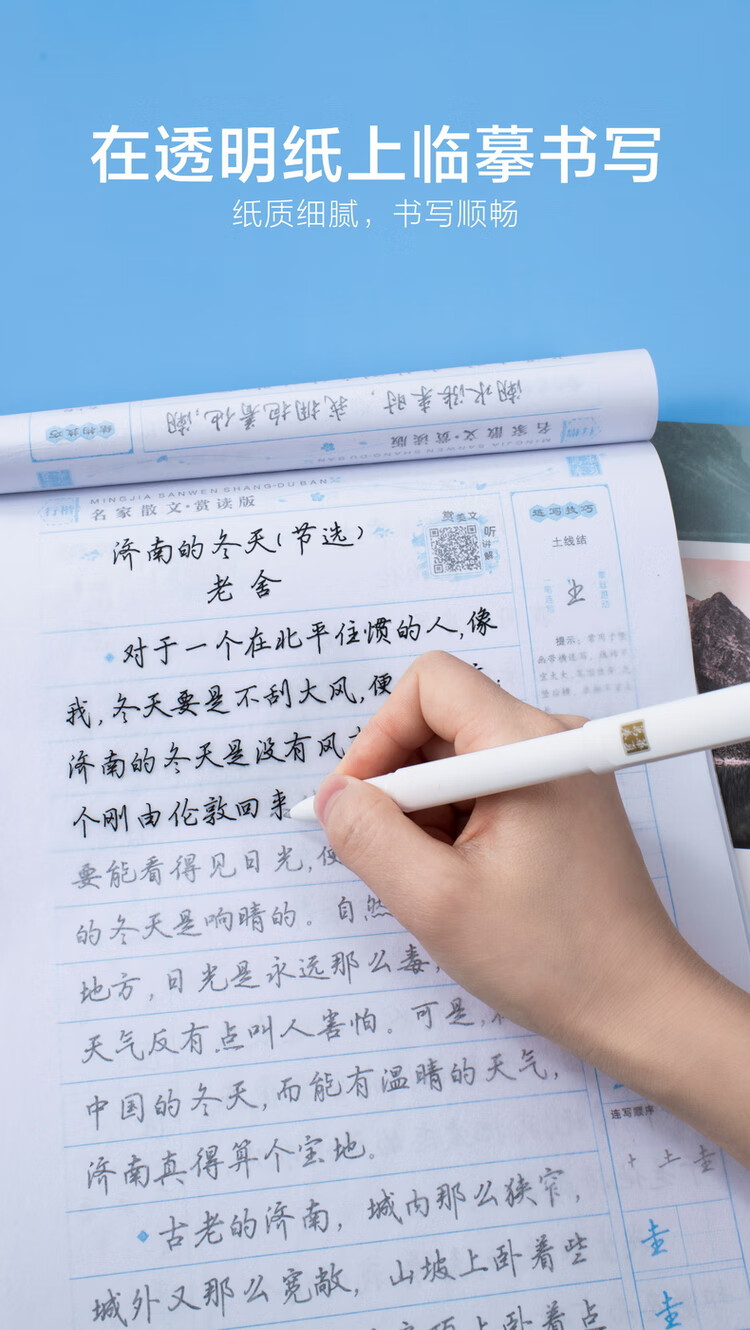 在透明纸上临摹书写
纸质细腻，书写顺畅
潮水涨来时，我拥抱着他；潮
结构技巧
名家散文·赏读版
MINGJIA SANWEN SHANG·DU BAN
行楷
MINGJIA SANWEN SHANG·DU BAN
名家散文·赏读版
济南的冬天(节选)
老舍
赏美文
听讲解
连写技巧
土线结
对于一个在北平住惯的人,像
我,冬天要是不刮大风,便
济南的冬天是没有风
个刚由伦敦回来
要能看得见日光,便
的冬天是响晴的。自然
地方,日光是永远那么毒,
天气反有点叫人害怕。可是,
中国的冬天,而能有温晴的天气,
济南真得算个宝地。
古老的济南,城内那么狭窄,
城外又那么宽敞,山坡上卧着些
上卧着点
提示：
连写顺序
圭
圭
圭